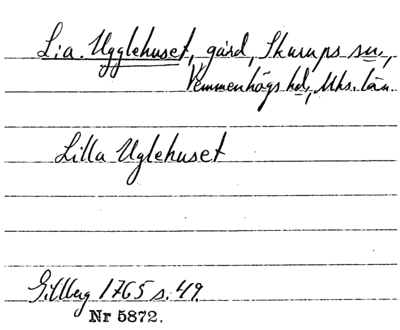 L:a. Ugglehuset, gård, Skurups sn,
Vemmenhögs hd, Mhs. län.
Lilla Uglehuset
Gillberg 1765 s. 49.
Nr 5872.